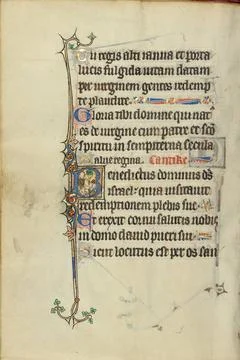 Tu regis alti ianua et porta
lucis fulgida uitam datam
per uirginem gentes redemp
te plaudite.
Gloria tibi domine qui nat
es de uirgine cum patre et sco
spiritu in sempiterna secula
Cantike
Benedictus dominus ds
israel: quia uisitauit
redemptionem plebis sue
Et erexit cornu salutis nobis
in domo dauid pueri sui
Sicut locutus est per os san